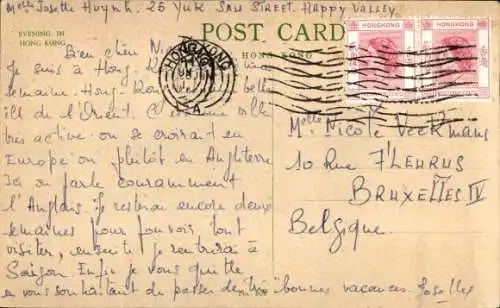 Melle Josette Huynh, 25 Yuk Sau Street. Happy Valley.
EVENING IN
HONG KONG
POST CARD
HONG KONG
HONGKONG
HONGKONG
HONG KONG
A
Bien chère Nicole
Je suis à Hong Kong
semaine. Hong Kong belle
ville de l'Orient. C'est une ville
très active. on se croirait en
Europe ou plutôt en Angleterre
Ici on parle couramment
l'Anglais. Je resterai encore deux
semaines pour pouvoir tout
visiter, ensuite je rentrerai à
Saïgon. Enfin je vous quitte
en vous souhaitant de passer de très bonnes vacances. Josette
Melle Nicole Veekmans
10 Rue Fleurus
Bruxelles IV
Belgique